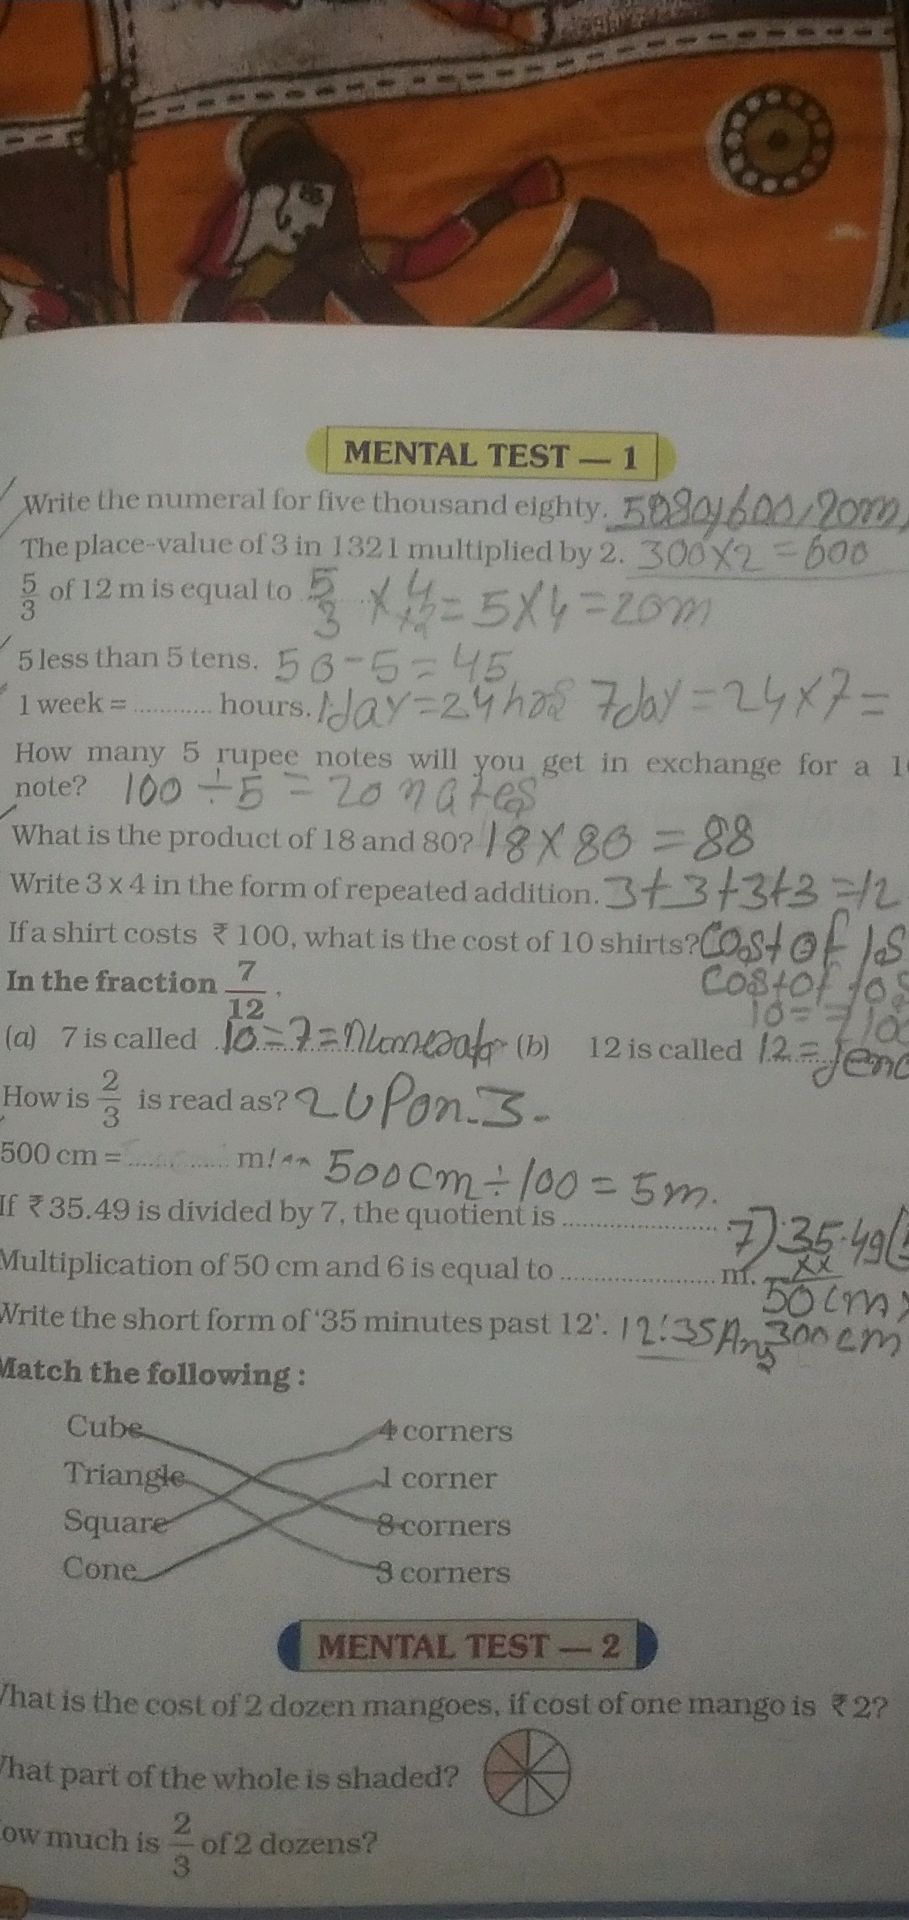 MENTAL TEST — 1
Write the numeral for five thousand eighty. 5080, 600, 20m,
The place-value of 3 in 1321 multiplied by 2. 300X2 = 600
5/3 of 12 m is equal to 5/3 X 4 = 5X4 = 20m
5 less than 5 tens. 50-5 = 45
1 week = ............ hours. 1day=24hos 7day = 24x7=
How many 5 rupee notes will you get in exchange for a
note? 100 ÷ 5 = 20 nates
What is the product of 18 and 80? 18 X 80 = 88
Write 3 x 4 in the form of repeated addition. 3+3+3+3 =12
If a shirt costs ₹ 100, what is the cost of 10 shirts? Cost of 1S
In the fraction 7/12. Cost of 10S
(a) 7 is called 10=7= (b) 12 is called 12=
How is 2/3 is read as? 2 UPon-3-
500 cm = ............ m! 500cm÷100 = 5m.
If ₹ 35.49 is divided by 7, the quotient is .................... 7)35.49(
Multiplication of 50 cm and 6 is equal to .................... m. 50cmx
Write the short form of '35 minutes past 12'. 12:35 Ans 300cm
Match the following :
Cube 4 corners
Triangle 1 corner
Square 8 corners
Cone 3 corners
MENTAL TEST — 2
What is the cost of 2 dozen mangoes, if cost of one mango is ₹ 2?
What part of the whole is shaded?
ow much is 2/3 of 2 dozens?